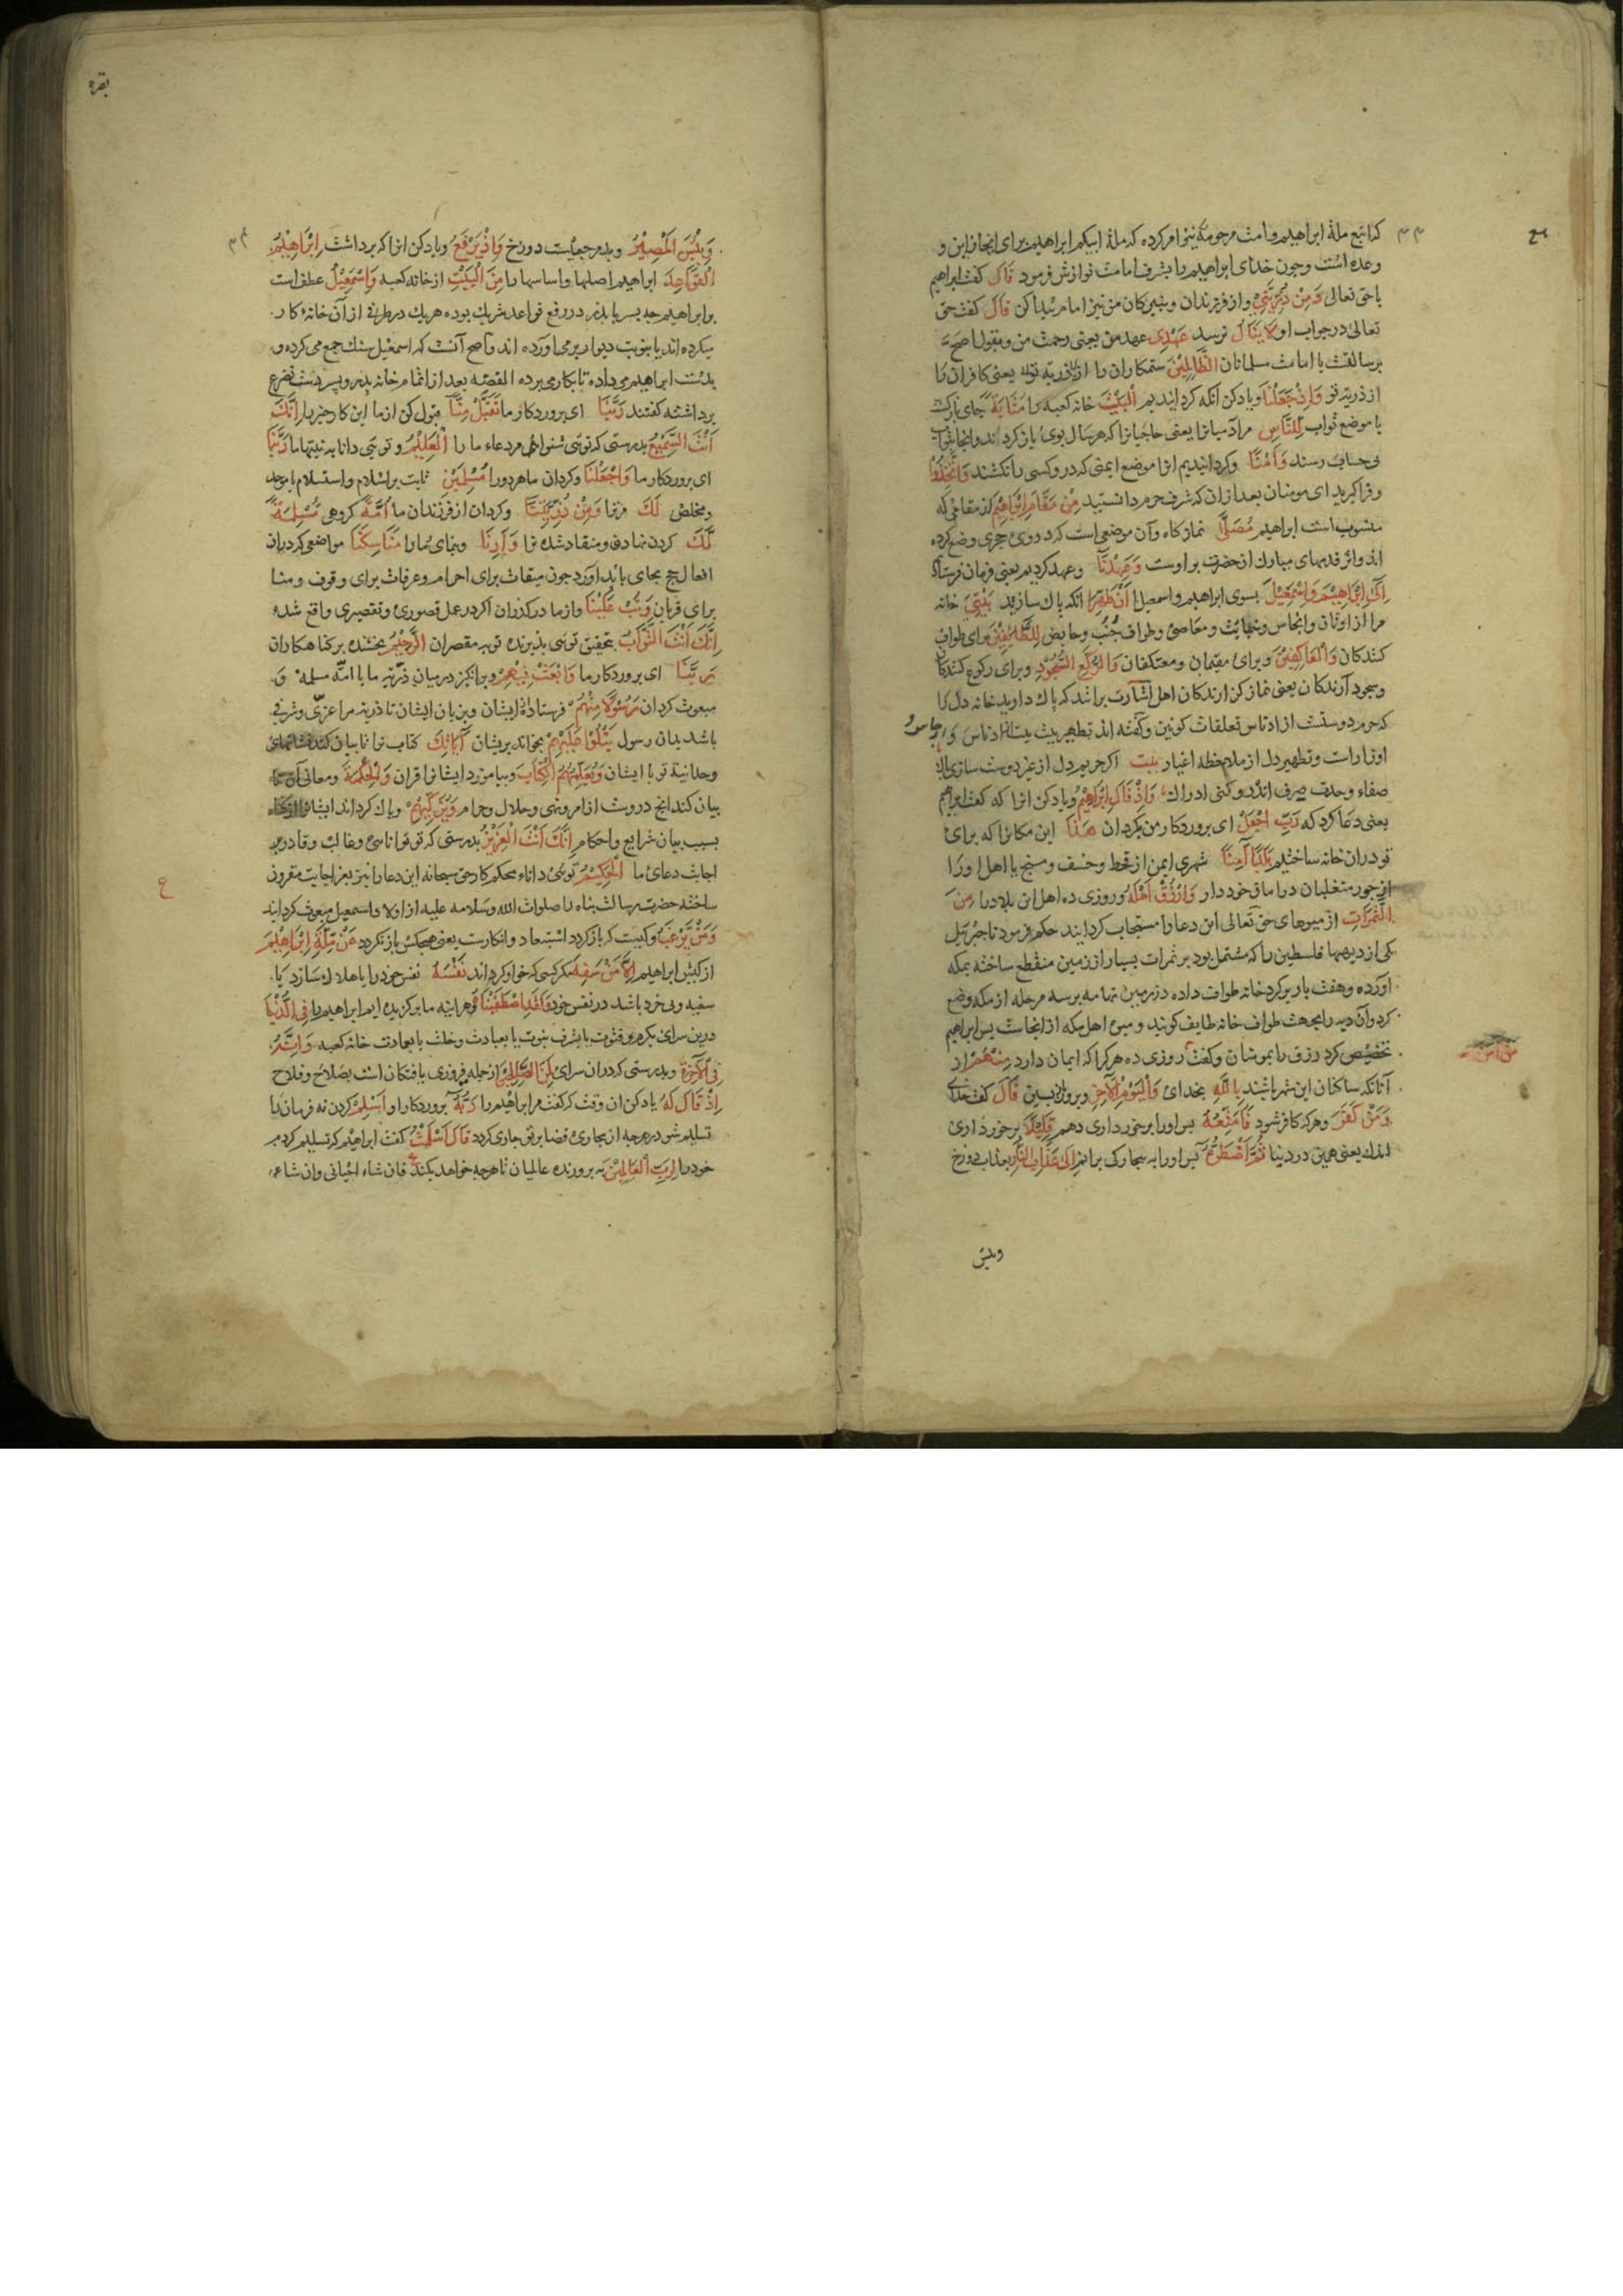 که اتبع ملة ابراهیم و امت مرحومه نیز امر کرده که ملة ابیکم ابراهیم برای انجاز این و
وعده است و چون خدای ابراهیم را بشرف امامت نوازش فرمود قَالَ گفت ابراهیم
با حق تعالی وَمِنْ ذُرِّيَّتِيْ و از فرزندان و نبیرگان من نیز امام پیدا کن قَالَ گفت حق
تعالی در جواب او لَا يَنَالُ نرسد عَهْدِي عهد من یعنی رحمت من و بقول اصح
برسالت یا امامت مسلمانان الظَّالِمِيْنَ ستمکاران را از ذریة تو یعنی کافران را
از ذریة تو وَاِذْ جَعَلْنَا و یاد کن انکه کردانیدیم الْبَيْتَ خانه کعبه را مَثَابَةً جای بازکشت
یا موضع ثواب لِلنَّاسِ مر آدمیانرا یعنی حاجیانرا که هر سال بوی باز کردند و انجا بثواب
بی حساب رسند وَاَمْنًا و کردانیدیم انرا موضع ایمنی که درو کسی را نکشند وَاتَّخِذُوْا
و فرا کیرید ای مومنان بعد از ان که شرف حرم دانستید مِنْ مَقَامِ اِبْرَاهِيْمَ از مقامی که
منسوب است ابراهیم مُصَلًّى نمازکاه و آن موضعی است که در وی حجری وضع کرده
اند و اثر قدمهای مبارک انحضرت بر اوست وَعَهِدْنَا و عهد کردیم یعنی فرمان فرستاد
اِلٰى اِبْرَاهِيْمَ وَاِسْمٰعِيْلَ بسوی ابراهیم و اسمعیل اَنْ طَهِّرَا انکه پاک سازید بَيْتِيَ خانه
مرا از اوثان و انجاس و خبایث و معاصی و طواف جنب و حایض لِلطَّائِفِيْنَ برای طواف
کنندکان وَالْعَاكِفِيْنَ و برای مقیمان و معتکفان وَالرُّكَّعِ السُّجُوْدِ و برای رکوع کنندکان
و سجود آرندکان یعنی نماز کزارندکان اهل اشارت برانند که پاک دارید خانه دل را
که حرم دوستست از ادناس تعلقات کونین و کفته اند تطهیر بیت از ادناس و ارجاس و
اوزار است و تطهیر دل از ملاحظه اغیار بیت اکر حریم دل از غیر دوست سازی پاک
صفاء وحدت صرف اندرو کنی ادراک وَاِذْ قَالَ اِبْرَاهِيْمُ و یاد کن انرا که گفت ابراهیم
یعنی دعا کرد که رَبِّ اجْعَلْ ای پروردکار من بکردان هٰذَا این مکانرا که برای
تو دران خانه ساختیم بَلَدًا اٰمِنًا شهری ایمن از قحط و خسف و مسخ یا اهل او را
از جور متغلبان در امان خود دار وَارْزُقْ اَهْلَهُ و روزی ده اهل این بلاد را مِنَ
الثَّمَرَاتِ از میوهای حق تعالی این دعا را مستجاب کردانید حکم فرمود تا جبرئیل
یکی از دیهها فلسطین را که مشتمل بود بر ثمرات بسیار از زمین منقطع ساخته بمکه
آورده و هفت بار بر کرد خانه طواف داده در زمین تهامه بر سه مرحله از مکه وضع
کرد و آن دیه را بجهت طواف خانه طایف کویند و میوه اهل مکه از انجاست پس ابراهیم
تخصیص کرد رزق را بمومنان و گفت روزی ده هر کرا که ایمان دارد مِنْهُمْ از
آنانکه ساکنان این شهر باشند بِاللّٰهِ بخدای وَالْيَوْمِ الْاٰخِرِ و بروز بازپسین قَالَ گفت خدای
وَمَنْ كَفَرَ و هر که کافر شود فَاُمَتِّعُهُ پس او را برخورداری دهم قَلِيْلًا برخورداری
اندک یعنی همین در دنیا ثُمَّ اَضْطَرُّهُ پس او را به بیچارکی برانم اِلٰى عَذَابِ النَّارِ بعذاب دوزخ
وبئس
بقره
وَبِئْسَ الْمَصِيْرُ و بد مرجعیست دوزخ وَاِذْ يَرْفَعُ و یاد کن انرا که برداشت اِبْرَاهِيْمُ
الْقَوَاعِدَ ابراهیم اصلها و اساسها را مِنَ الْبَيْتِ از خانه کعبه وَاِسْمٰعِيْلُ عطف است
بر ابراهیم چه پسر با پدر در رفع قواعد شریک بوده هر یک در طرفی از آن خانه کار
میکرده اند یا بنوبت دیوار بر می آورده اند و اصح آنست که اسمعیل سنک جمع می کرده و
بدست ابراهیم می داده تا بکار می برده القصه بعد از اتمام خانه پدر و پسر دست تضرع
برداشته گفتند رَبَّنَا ای پروردکار ما تَقَبَّلْ مِنَّا قبول کن از ما این کار خیر را اِنَّكَ
اَنْتَ السَّمِيْعُ بدرستی که توئی شنوا مر دعاء ما را الْعَلِيْمُ و توئی دانا به نیتهاء ما رَبَّنَا
ای پروردکار ما وَاجْعَلْنَا و کردان ما هر دو را مُسْلِمَيْنِ ثابت بر اسلام و استسلام یا موحد
و مخلص لَكَ مر ترا وَمِنْ ذُرِّيَّتِنَا و کردان از فرزندان ما اُمَّةً کروهی مُسْلِمَةً
لَكَ کردن نهاده و منقاد شده ترا وَاَرِنَا و بنمای ما را مَنَاسِكَنَا مواضعی که دران
افعال حج بجای باید آورد چون میقات برای احرام و عرفات برای وقوف و منا
برای قربان وَتُبْ عَلَيْنَا و از ما درکذران اکر در عمل قصوری و تقصیری واقع شده
اِنَّكَ اَنْتَ التَّوَّابُ بتحقیق توئی پذیرنده توبه مقصران الرَّحِيْمُ بخشنده بر کناهکاران
رَبَّنَا ای پروردکار ما وَابْعَثْ فِيْهِمْ و برانکیز در میان ذریه ما یا امة مسلمه و
مبعوث کردان رَسُوْلًا مِنْهُمْ فرستاده از ایشان و بزبان ایشان تا ذریه مرا عزی و شرفی
باشد بدان رسول يَتْلُوْا عَلَيْهِمْ بخواند بریشان اٰيَاتِكَ کتاب ترا تا بیان کند نشانهای
وحدانیة تو با ایشان وَيُعَلِّمُهُمُ الْكِتَابَ و بیاموزد ایشانرا قران وَالْحِكْمَةَ و معانی آن تا
بیان کند انچ دروست از امر و نهی و حلال و حرام وَيُزَكِّيْهِمْ و پاک کرداند ایشانرا
بسبب بیان شرایع و احکام اِنَّكَ اَنْتَ الْعَزِيْزُ بدرستی که تو توانائی و غالب و قادر بر
اجابت دعای ما الْحَكِيْمُ توئی داناء محکم کار حق سبحانه این دعا را نیز بعز اجابت مقرون
ساخته حضرت رسالت پناه را صلوات الله و سلامه علیه از اولاد اسمعیل مبعوث کردانید
وَمَنْ يَرْغَبُ و کیست که باز کردد استبعاد و انکارست یعنی هیچکس باز نکردد عَنْ مِلَّةِ اِبْرَاهِيْمَ
از کیش ابراهیم اِلَّا مَنْ سَفِهَ مکر کسی که خوار کرداند نَفْسَهُ نفس خود را یا هلاک سازد یا
سفیه و بی خرد باشد در نفس خود وَلَقَدِ اصْطَفَيْنَاهُ و هراینه ما برکزیده ایم ابراهیم را فِي الدُّنْيَا
درین سرای بکرم و فتوت یا بشرف نبوت یا بعبادت و خلت یا بعمارت خانه کعبه وَاِنَّهُ
فِي الْاٰخِرَةِ و بدرستی که در ان سرای لَمِنَ الصَّالِحِيْنَ از جمله فیروزی یافتکان است بصلاح و فلاح
اِذْ قَالَ لَهُ یاد کن ان وقت که گفت مر ابراهیم را رَبُّهُ پروردکار او اَسْلِمْ کردن نه فرمان را یا
تسلیم شو در هرچه از مجاری قضا بر تو جاری کردد قَالَ اَسْلَمْتُ گفت ابراهیم که تسلیم کردم
خود را لِرَبِّ الْعَالَمِيْنَ به پرورنده عالمیان تا هرچه خواهد بکند فان شاء احیانی و ان شاء
ع